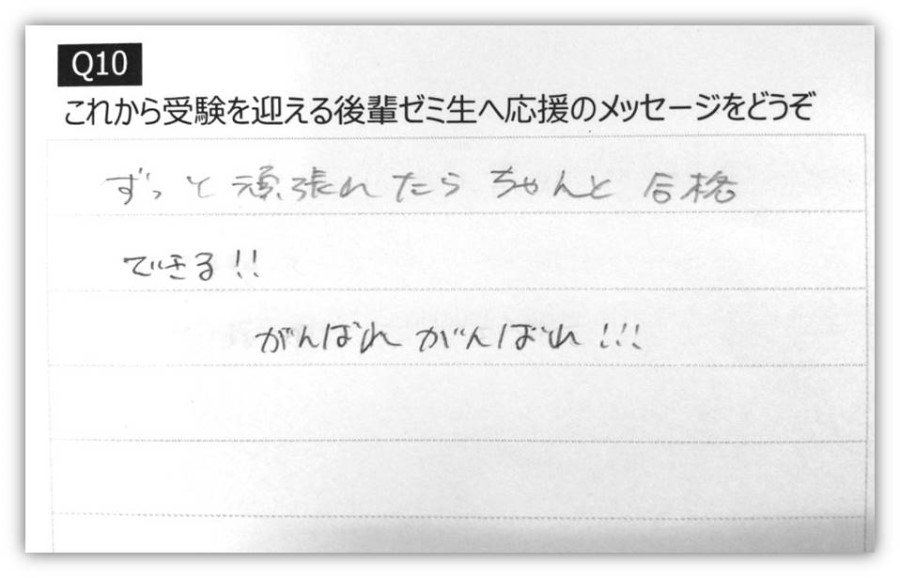 Q10
これから受験を迎える後輩ゼミ生へ応援のメッセージをどうぞ
ずっと頑張れたらちゃんと合格
できる!!
がんばれ がんばれ!!!